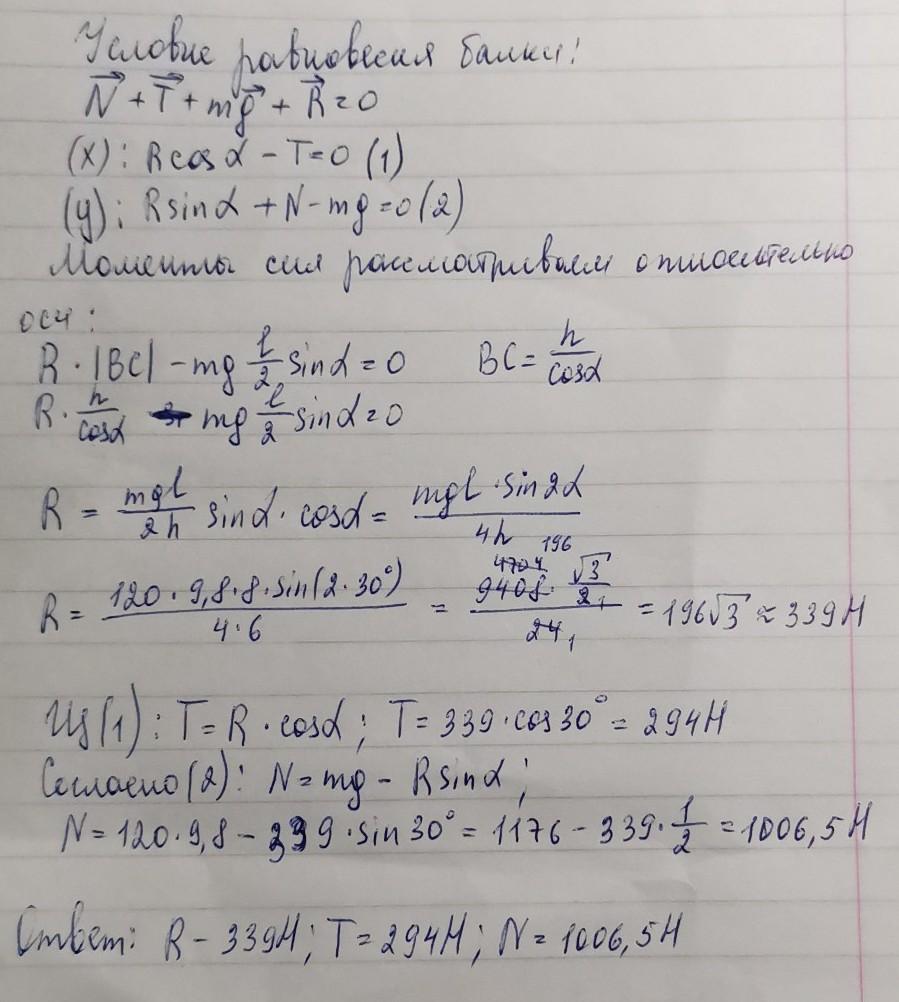 Условие равновесия балки:
N⃗ + T⃗ + mg⃗ + R⃗ = 0
(x): Rcosα - T = 0 (1)
(y): Rsinα + N - mg = 0 (2)
Моменты сил рассматриваем относительно
оси:
R · |BC| - mg l/2 sinα = 0 BC = h/cosα
R · h/cosα - mg l/2 sinα = 0
R = mgl/2h sinα · cosα = mgl · sin2α/4h
R = 120 · 9,8 · 8 · sin(2 · 30°)/4 · 6 = 9408 4704 196 · √3/2 1/24 1 = 196√3 ≈ 339 Н
Из (1): T = R · cosα; T = 339 · cos30° = 294 Н
Согласно (2): N = mg - Rsinα;
N = 120 · 9,8 - 339 · sin30° = 1176 - 339 · 1/2 = 1006,5 Н
Ответ: R - 339Н; T = 294Н; N = 1006,5Н